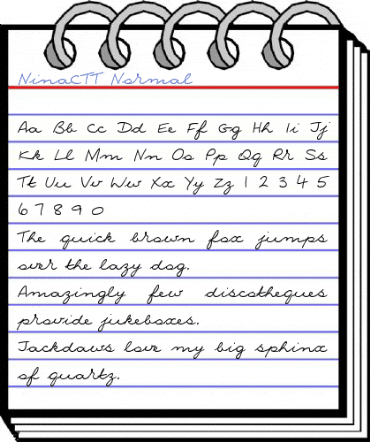 NinaCTT Normal
Aa Bb Cc Dd Ee Ff Gg Hh Ii Jj
Kk Ll Mm Nn Oo Pp Qq Rr Ss
Tt Uu Vv Ww Xx Yy Zz 1 2 3 4 5
6 7 8 9 0
The quick brown fox jumps
over the lazy dog.
Amazingly few discotheques
provide jukeboxes.
Jackdaws love my big sphinx
of quartz.